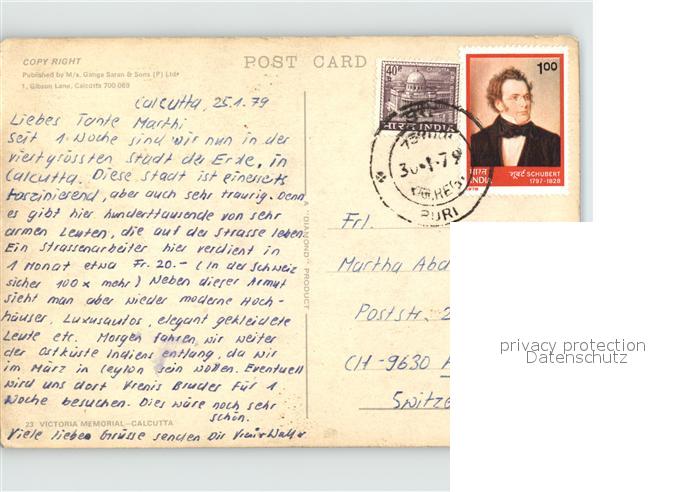 COPY RIGHT
POST CARD
Published by M/s. Ganga Saran & Sons (P) Ltd.
1, Gibson Lane, Calcutta 700 069
Calcutta, 25.1.79
Liebes Tante Marthi
Seit 1 Woche sind wir nun in der
viertgrössten Stadt der Erde, in
Calcutta. Diese Stadt ist einerseits
faszinierend, aber auch sehr traurig. Denn
es gibt hier hunderttausende von sehr
armen Leuten, die auf der Strasse leben.
Ein Strassenarbeiter hier verdient in
1 Monat etwa Fr. 20.- (in der Schweiz
sicher 100 x mehr) Neben dieser Armut
sieht man aber wieder moderne Hoch-
häuser, Luxusautos, elegant gekleidete
Leute etc. Morgen fahren wir weiter
der Ostküste Indiens entlang, da wir
im März in Ceylon sein wollen. Eventuell
wird uns dort Vrenis Bruder für 1
Woche besuchen. Dies wäre noch sehr
schön.
23 VICTORIA MEMORIAL–CALCUTTA
Viele liebe Grüsse senden Dir Vreni + Walter
"DIAMOND" PRODUCT
40
CALCUTTA
भारत INDIA
1.00
भारत
INDIA
शूबर्ट SCHUBERT
1797-1828
30.1.79
PURI
Frl.
Martha Abd
Poststr. 2
CH-9630
Switze
privacy protection
Datenschutz